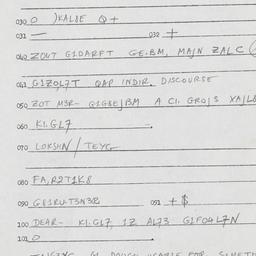 030 0 )KAL8E Q +
031 — 032 +
040 ZOUT G1DARFT GE.BM, MAJN ZALC (
041 G1ZOL7T QAP INDIR. DISCOURSE
050 ZOT M3R- G1G8EJBM A CI. GROJ3 XAJL8
060 KI.GL7 —.
070 LOKSHN / TEYG
080 FA,R2T1K8
090 G81RUT3N3R 091 + $
100 DEAR- KI.GL7, 1Z AL73 G1F04L7N
101 0